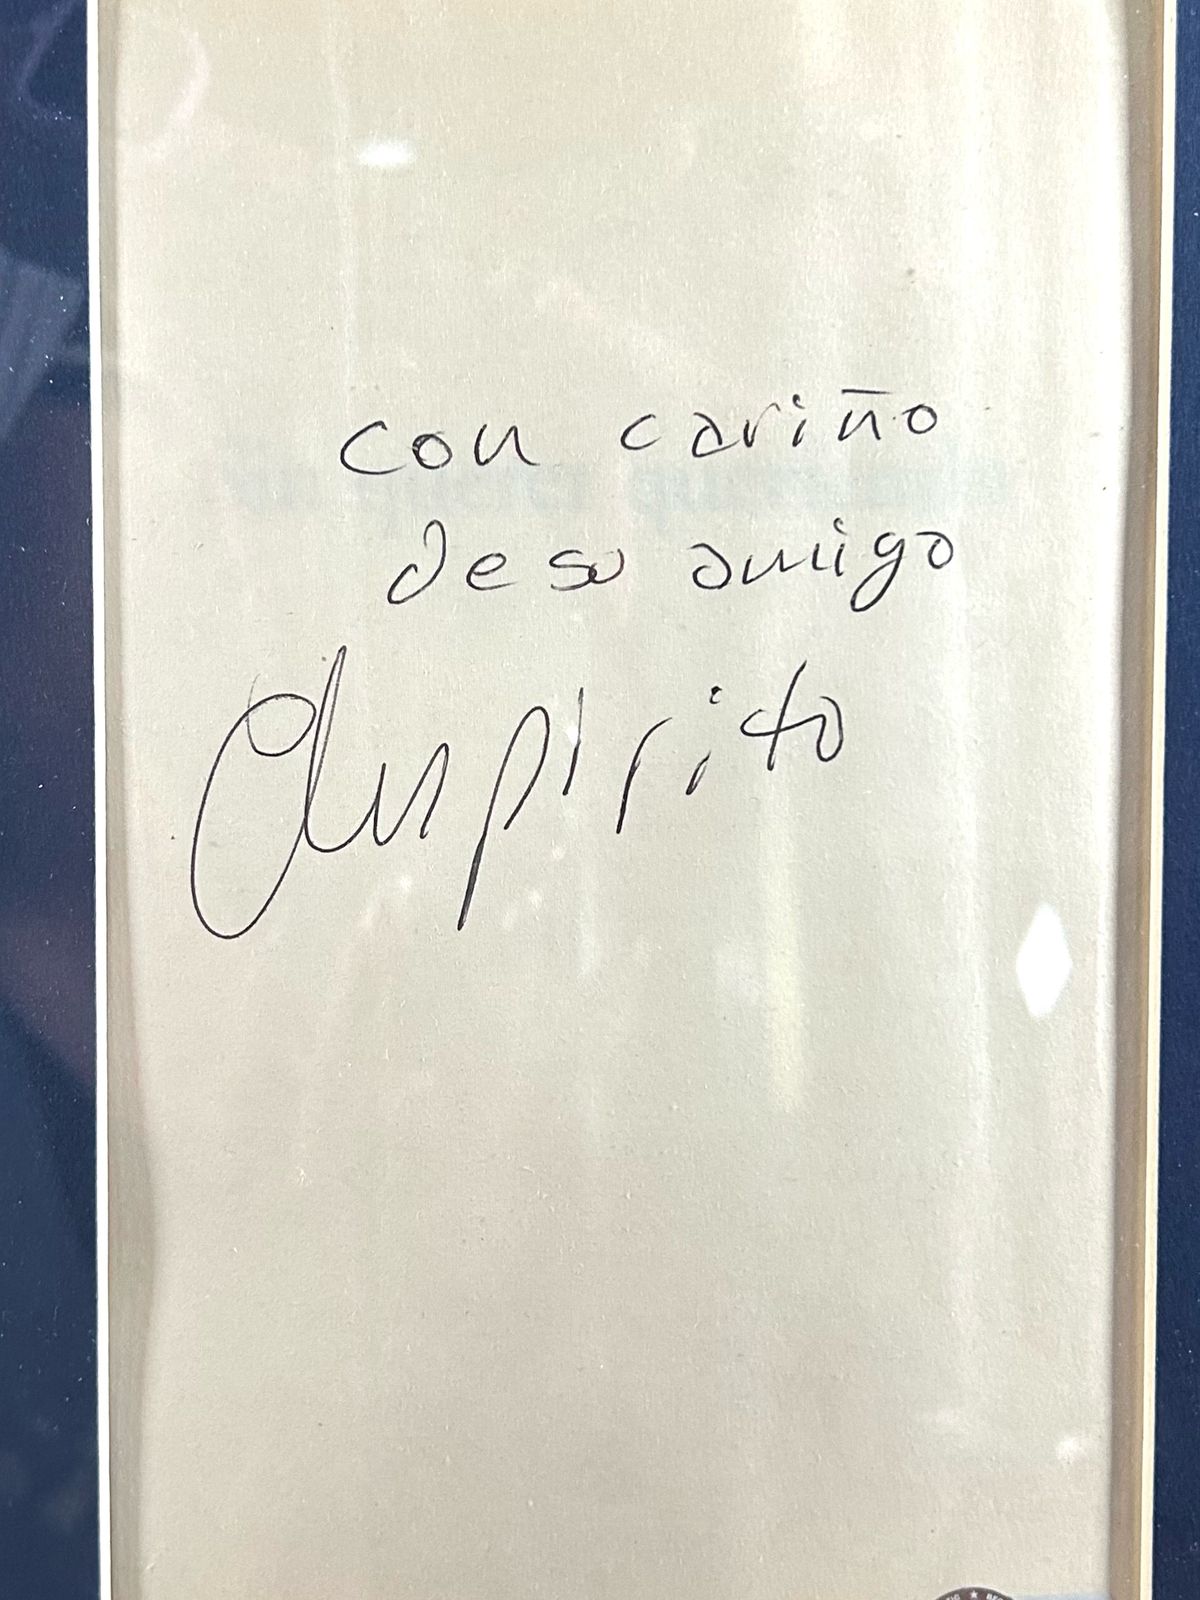 con cariño
de su amigo
Chespirito